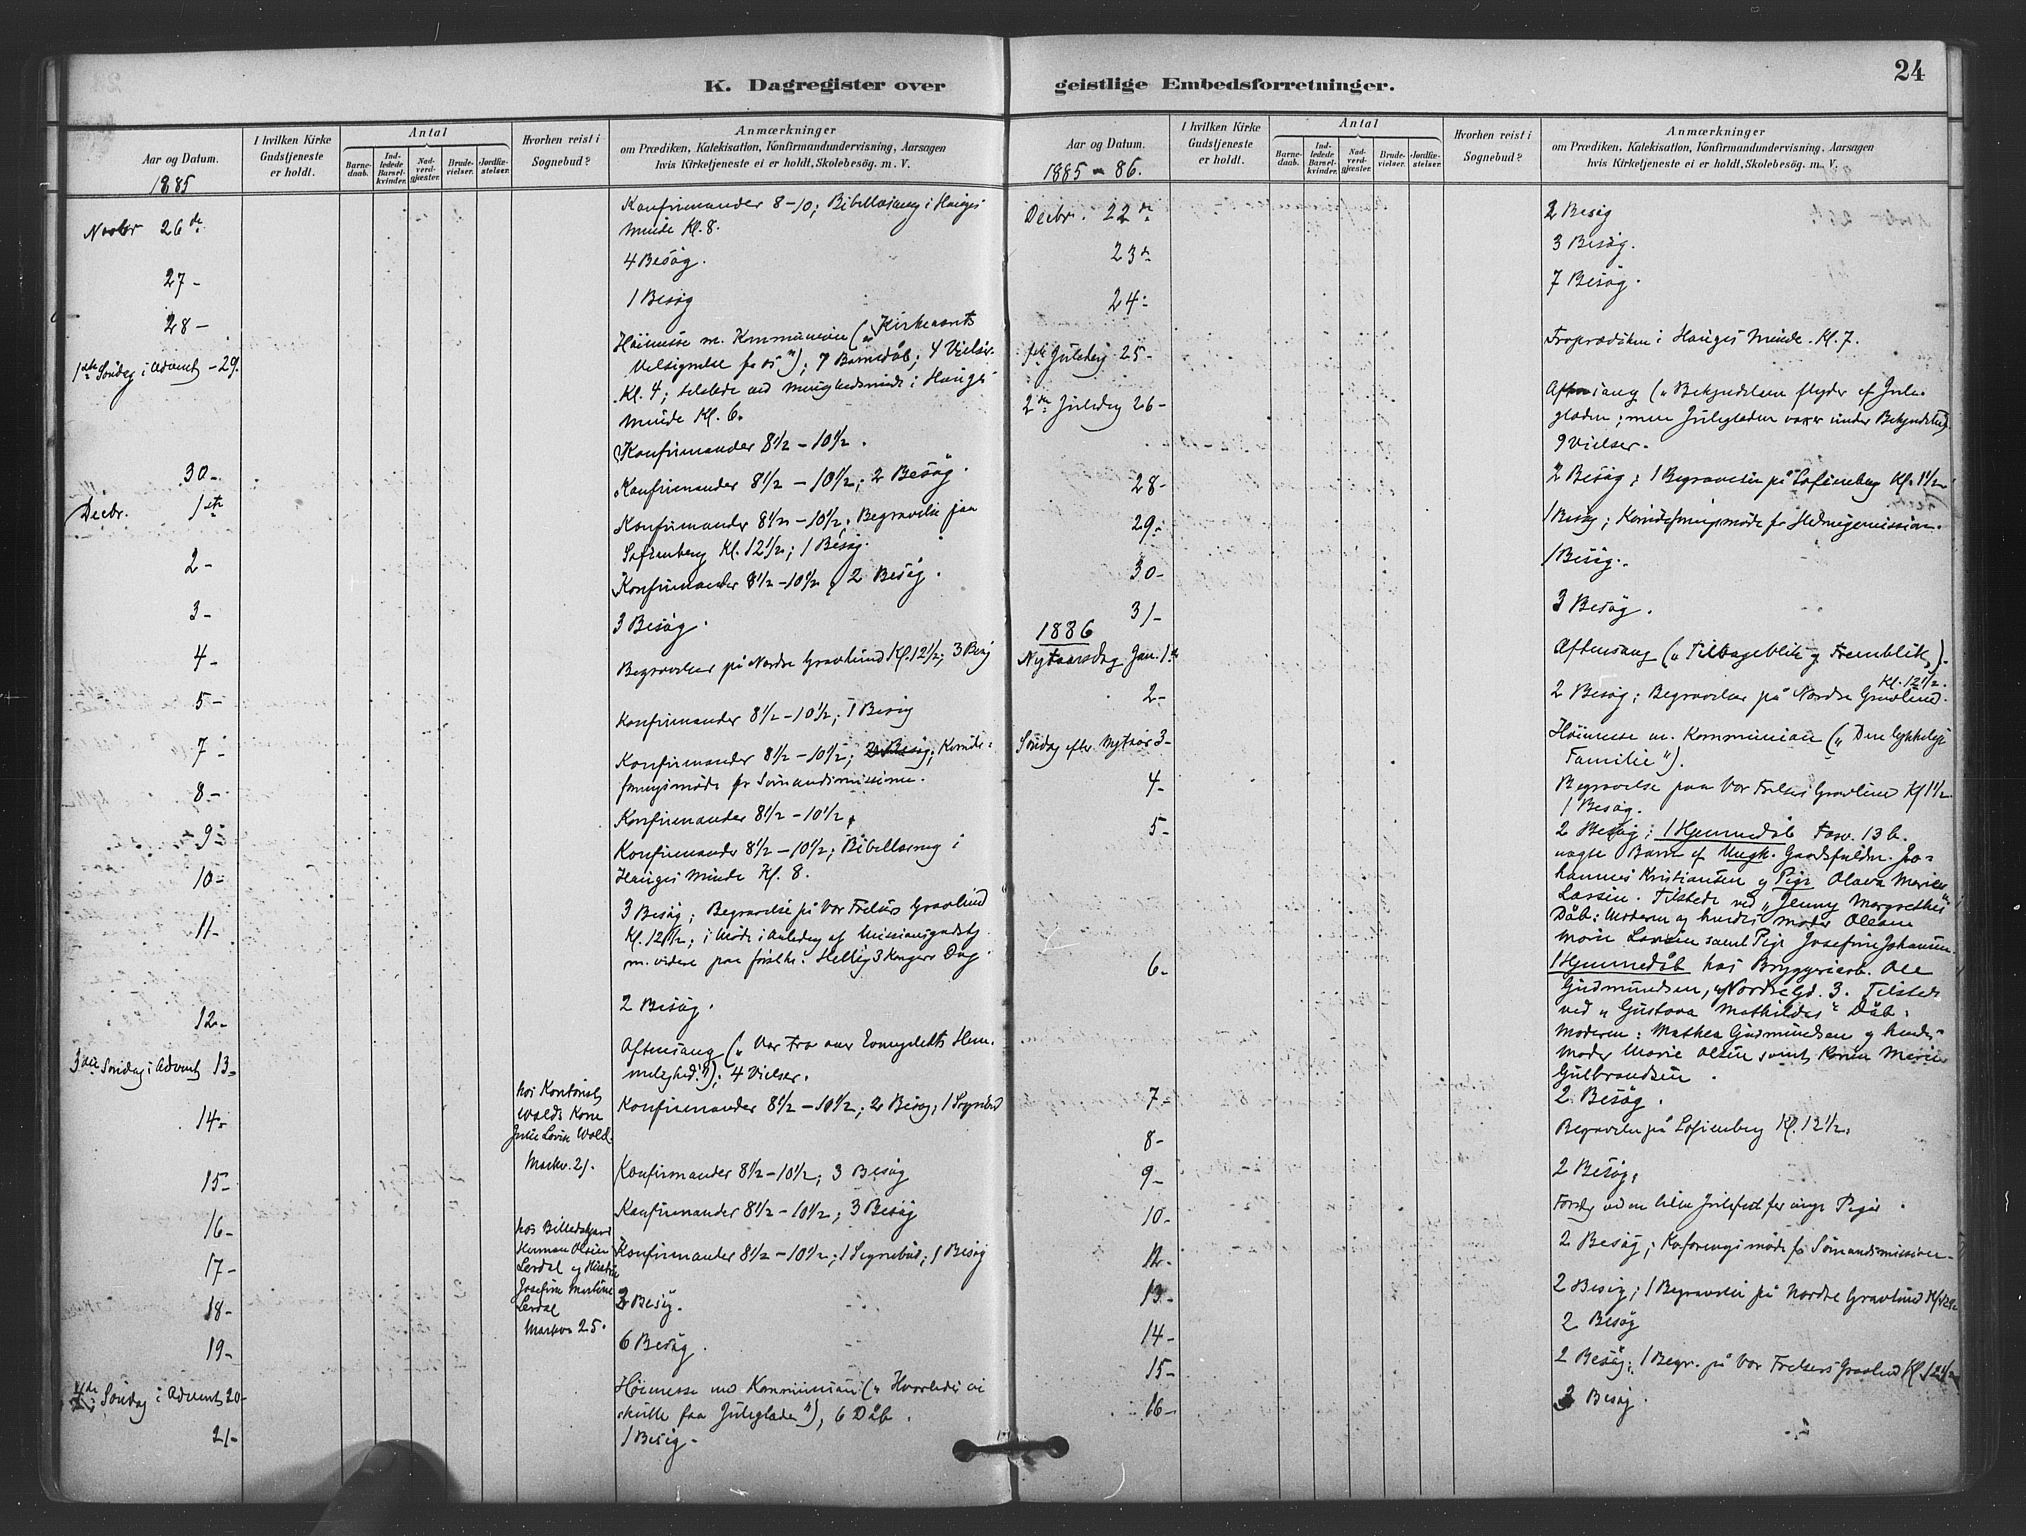 24
K. Dagregister over geistlige Embedsforretninger.
Aar og Datum.
I hvilken Kirke Gudstjeneste er holdt.
Antal
Barnedaab.
Indledede Barselkvinder.
Nadverdgjæster.
Brudevielser.
Jordfæstelser.
Hvorhen reist i Sognebud?
Anmærkninger
om Prædiken, Katekisation, Konfirmandundervisning, Aarsagen
hvis Kirketjeneste ei er holdt, Skolebesög. m. V.
1885
Novbr 26de Konfirmander 8-10; Bibellæsning i Hauges
Minde Kl. 8.
27- 4 Besög.
28- 1 Besög
1ste Søndag i Advent -29. Höimesse m. Kommunion („Kirkeaarets
Velsignelse for os"); 7 Barnedåb; 4 Vielser
Kl. 4; talede ved i Hauges
Minde Kl. 6.
30- Konfirmander 8½-10½.
Decbr. 1ste Konfirmander 8½-10½; 2 Besög.
2- Konfirmander 8½-10½; Begravelse paa
Sofienberg Kl. 12½; 1 Besög.
3- Konfirmander 8½-10½, 2 Besög.
4- 3 Besög.
5- Begravelse på Nordre Gravlund Kl. 12½; 3 Besög
7- Konfirmander 8½-10½; 1 Besög
8- Konfirmander 8½-10½; Komite-
for Sömandsmissionen.
9- Konfirmander 8½-10½.
10- Konfirmander 8½-10½; Bibellæsning i
Hauges Minde Kl. 8.
11- 3 Besög; Begravelse på Vor Frelsers Gravlund
Kl. 12½; i Möde i Anledng af Missionsgudstj.
m. videre paa Hellig 3 Kongers Dag.
12- 2 Besög.
3die Søndag i Advent 13- Aftensang („Vor Tro over Evangeliets Hem-
melighed."); 4 Vielser.
14- hos Kontorist
Wolds Kone
Julie Wold.
Markv. 21.
Konfirmander 8½-10½; 2 Besög; 1 Sognebud
15- Konfirmander 8½-10½; 3 Besög
16- Konfirmander 8½-10½; 3 Besög
17- hos Billedskjærer
Herman Olsen
Lerdal og Hustru
Josefine Martine
Lerdal
Markv 25.
Konfirmander 8½-10½; 1 Sognebud; 1 Besög
18- 2 Besög.
19- 6 Besög.
4de Søndag i Advent 20- Höimesse med Kommunion („Hvorledes vi
skulle faa Juleglæde"), 6 Dåb.
21- 1 Besög.
Aar og Datum.
I hvilken Kirke Gudstjeneste er holdt.
Antal
Barnedaab.
Indledede Barselkvinder.
Nadverdgjæster.
Brudevielser.
Jordfæstelser.
Hvorhen reist i Sognebud?
Anmærkninger
om Prædiken, Katekisation, Konfirmandundervisning, Aarsagen
hvis Kirketjeneste ei er holdt, Skolebesög. m. V.
1885-86.
Decbr. 22de 2 Besög
23de 3 Besög.
24- 7 Besög.
1ste Juledag 25- Froprædiken i Hauges Minde. Kl. 7.
2den Juledag 26- Aftensang („Bekjendelsen flyder af Jule-
glæden; men Juleglæden voxer under Bekjendelsen)
9 Vielser.
28- 2 Besög; 1 Begravelse på Sofienberg Kl. 1½
29- 1 Besög; for Hedningemissionen.
30- 1 Besög.
31- 3 Besög.
1886
Nytaarsdag Jan. 1ste Aftensang („Tilbageblik og Fremblik").
2- 2 Besög; Begravelse på Nordre Gravlund. Kl. 12½.
Søndag efter Nytaar 3- Höimesse m. Kommunion („Den lykkelige
Familie").
4- Begravelse paa Vor Frelsers Gravlund Kl 1½
1 Besög.
5- 2 Besög; 1 Hjemmedåb 13 b.
uægte Barn af Ungk. Gaardsfuldm. Jo-
hannes Kristiansen og Pige Olava Marie
Larsen. Tilstede ved „Jenny Margrethes"
Dåb: Moderen og hendes Moder Oleane
Marie Larsen samt Pige Josefine Johansen.
6- 1 Hjemmedåb hos Bryggeriarb. Ole
Gudmundsen, Nordregd. 3. Tilstede
ved „Gustava Mathildas" Dåb:
Moderen: Mathea Gudmundsen og hendes
Moder Marie Olsen samt Karen Marie
Gulbrandsen.
7- 2 Besög.
8- Begravelse på Sofienberg Kl. 12½.
9- 2 Besög.
10- Foredrag ved en liden Julefest for unge Piger.
12- 2 Besög; for Sömandsmissionen
13- 2 Besög; 1 Begravelse på Nordre Gravlund Kl.
14- 2 Besög
15- 2 Besög; 1 Begr. på Vor Frelsers Gravlund Kl. 12½
16- 3 Besög.